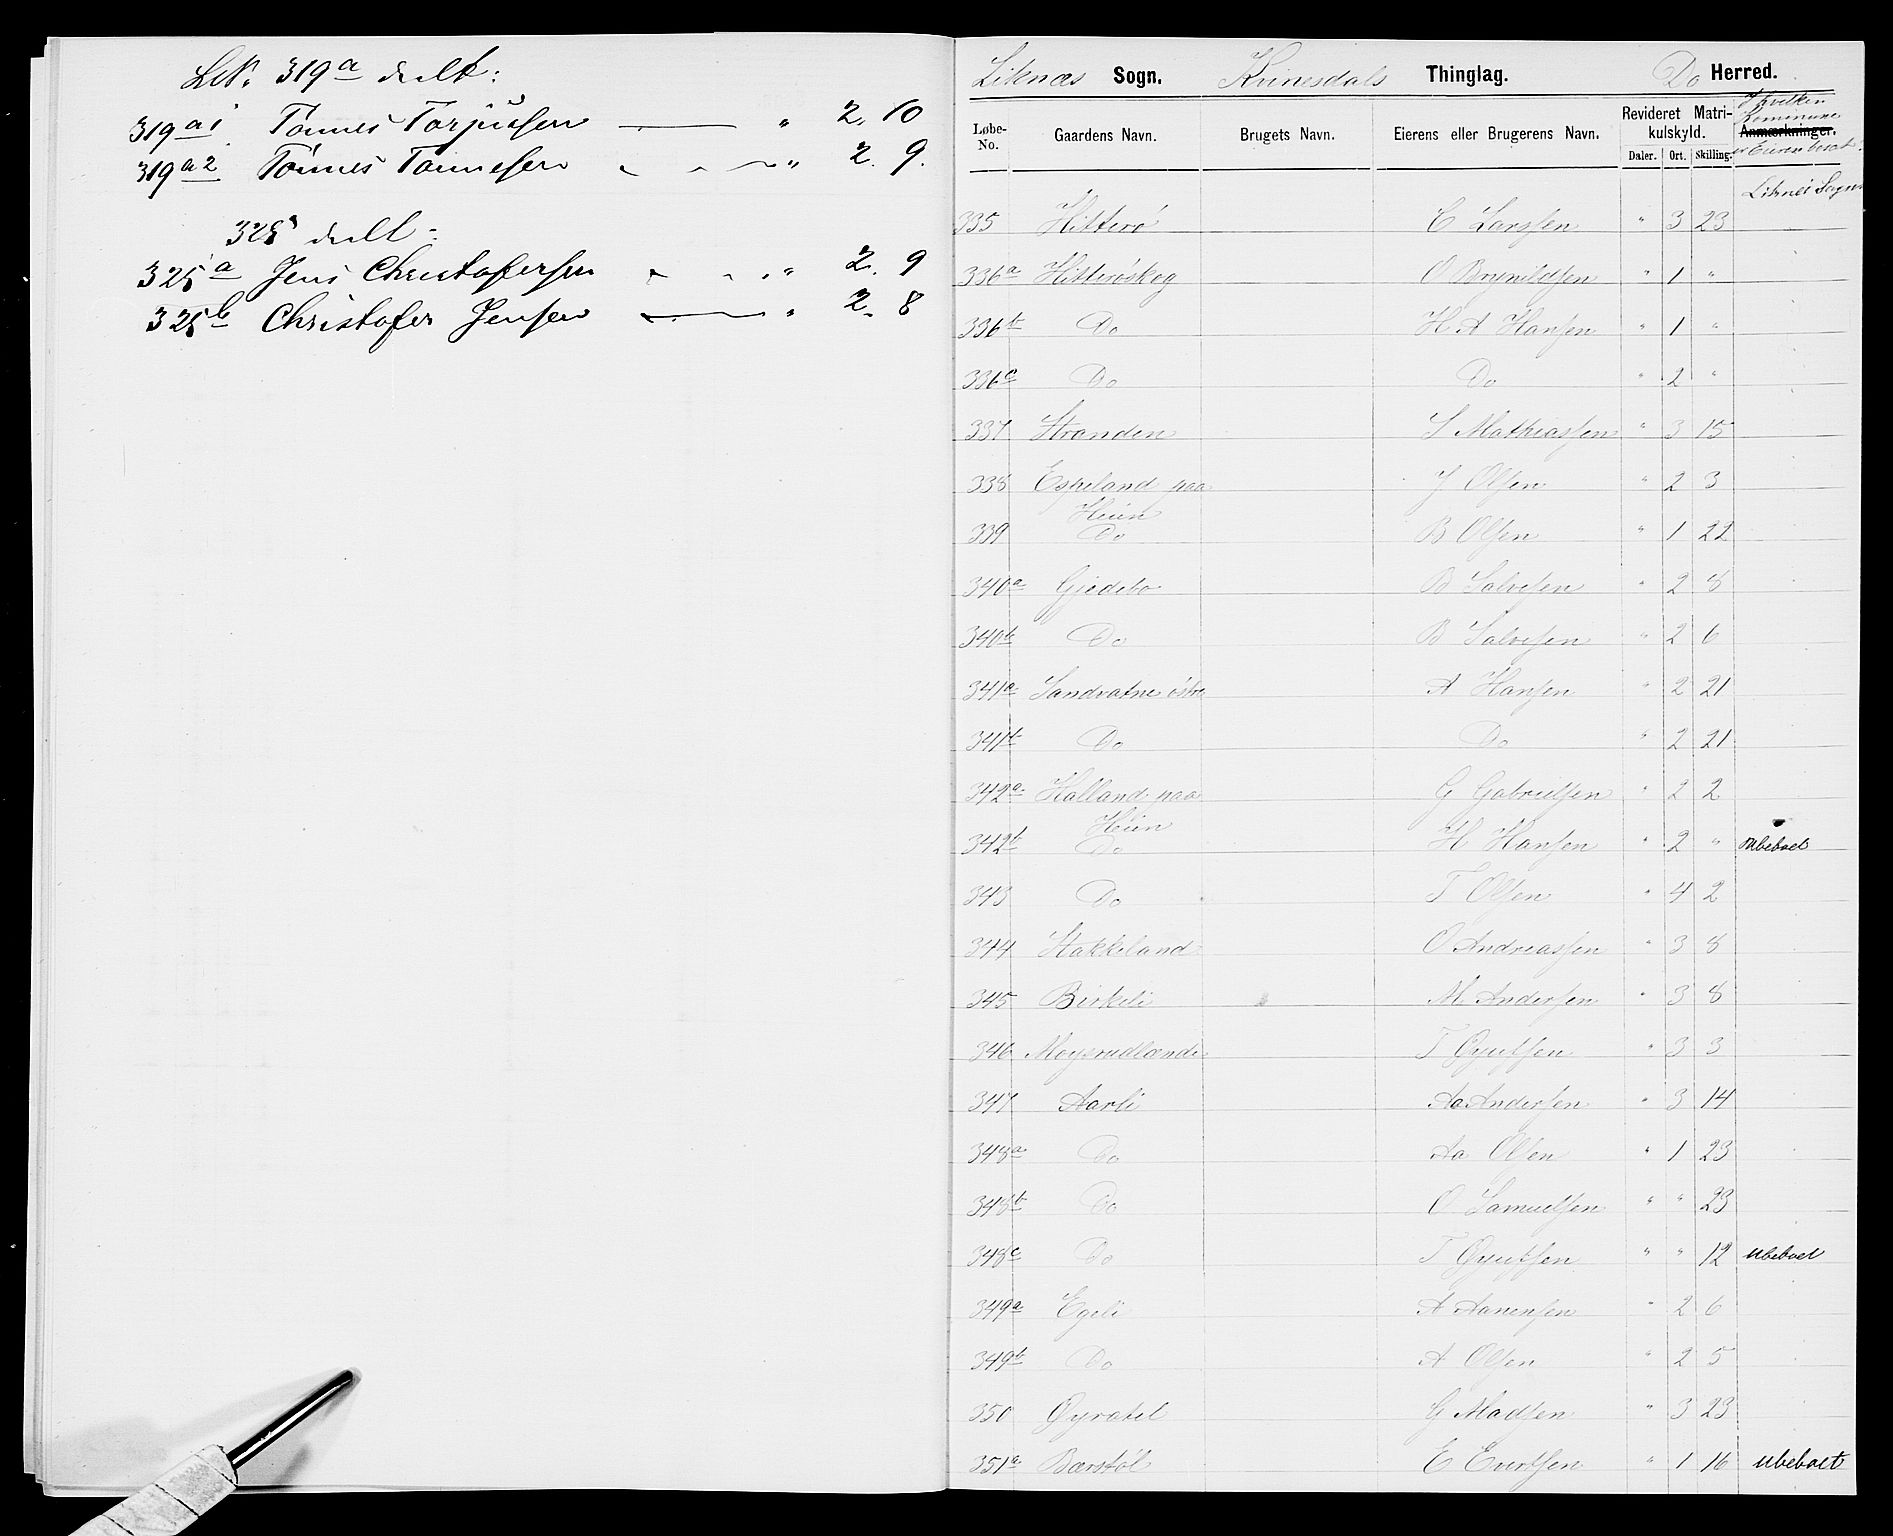 LN. 319a deelt:
319a1 Tønnes Torjussen " 2. 10
319a2 Tønnes Tønnesen " 2. 9.
325 deelt:
325a Jens Christofersen " 2. 9
325b Christofer Jensen " 2. 8
Liknæs Sogn. Kvinesdals Thinglag. Do Herred.
Løbe-No. Gaardens Navn. Brugets Navn. Eierens eller Brugerens Navn. Revideret Matrikulskyld. Daler. Ort. Skilling. Anmærkninger.
I hvilken Kommune er Eieren bosat?
Liknes Sogn
335 Hitterø E Larssen " 3 23
336a Hitterøskog O Brynildsen " 1 "
336b Do H A Hansen " 1 "
336c Do Do " 2 "
337 Stranden S Mathiassen " 3 15
338 Espeland paa Heien J Olsen " 2 3
339 Do B Olsen " 1 22
340a Gjedebo B Salvesen " 2 8
340b Do B Salvesen " 2 6
341a Sandvatne østre A Hansen " 2 21
341b Do Do " 2 21
342a Halland paa Heien G Gabrielsen " 2 2
342b Do H Hansen " 2 " ubeboet
343 Do T Olsen " 4 2
344 Stakkeland O Andreassen " 3 8
345 Birkeli M Andersen " 3 8
346 Moysrudlænde T Gyutsen " 3 3
347 Aarli Aa Andersen " 3 14
348a Do Aa Olsen " 1 23
348b Do O Samuelsen " " 23
348c Do T Gyutsen " " 12 ubeboet
349a Egeli A Aanensen " 2 6
349b Do A Olsen " 2 5
350 Gyvatel G Madsen " 3 23
351a Bærstøl E Evertsen " 1 16 ubeboet